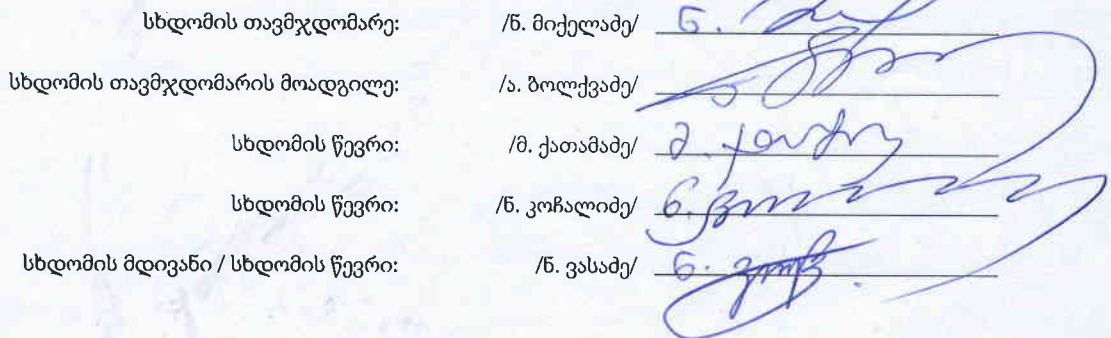 სხდომის თავმჯდომარე: /ნ. მიქელაძე/ ნ.
სხდომის თავმჯდომარის მოადგილე: /ა. ბოლქვაძე/
სხდომის წევრი: /მ. ქათამაძე/ მ.
სხდომის წევრი: /ნ. კოჩალიძე/ ნ.
სხდომის მდივანი / სხდომის წევრი: /ნ. ვასაძე/ ნ.